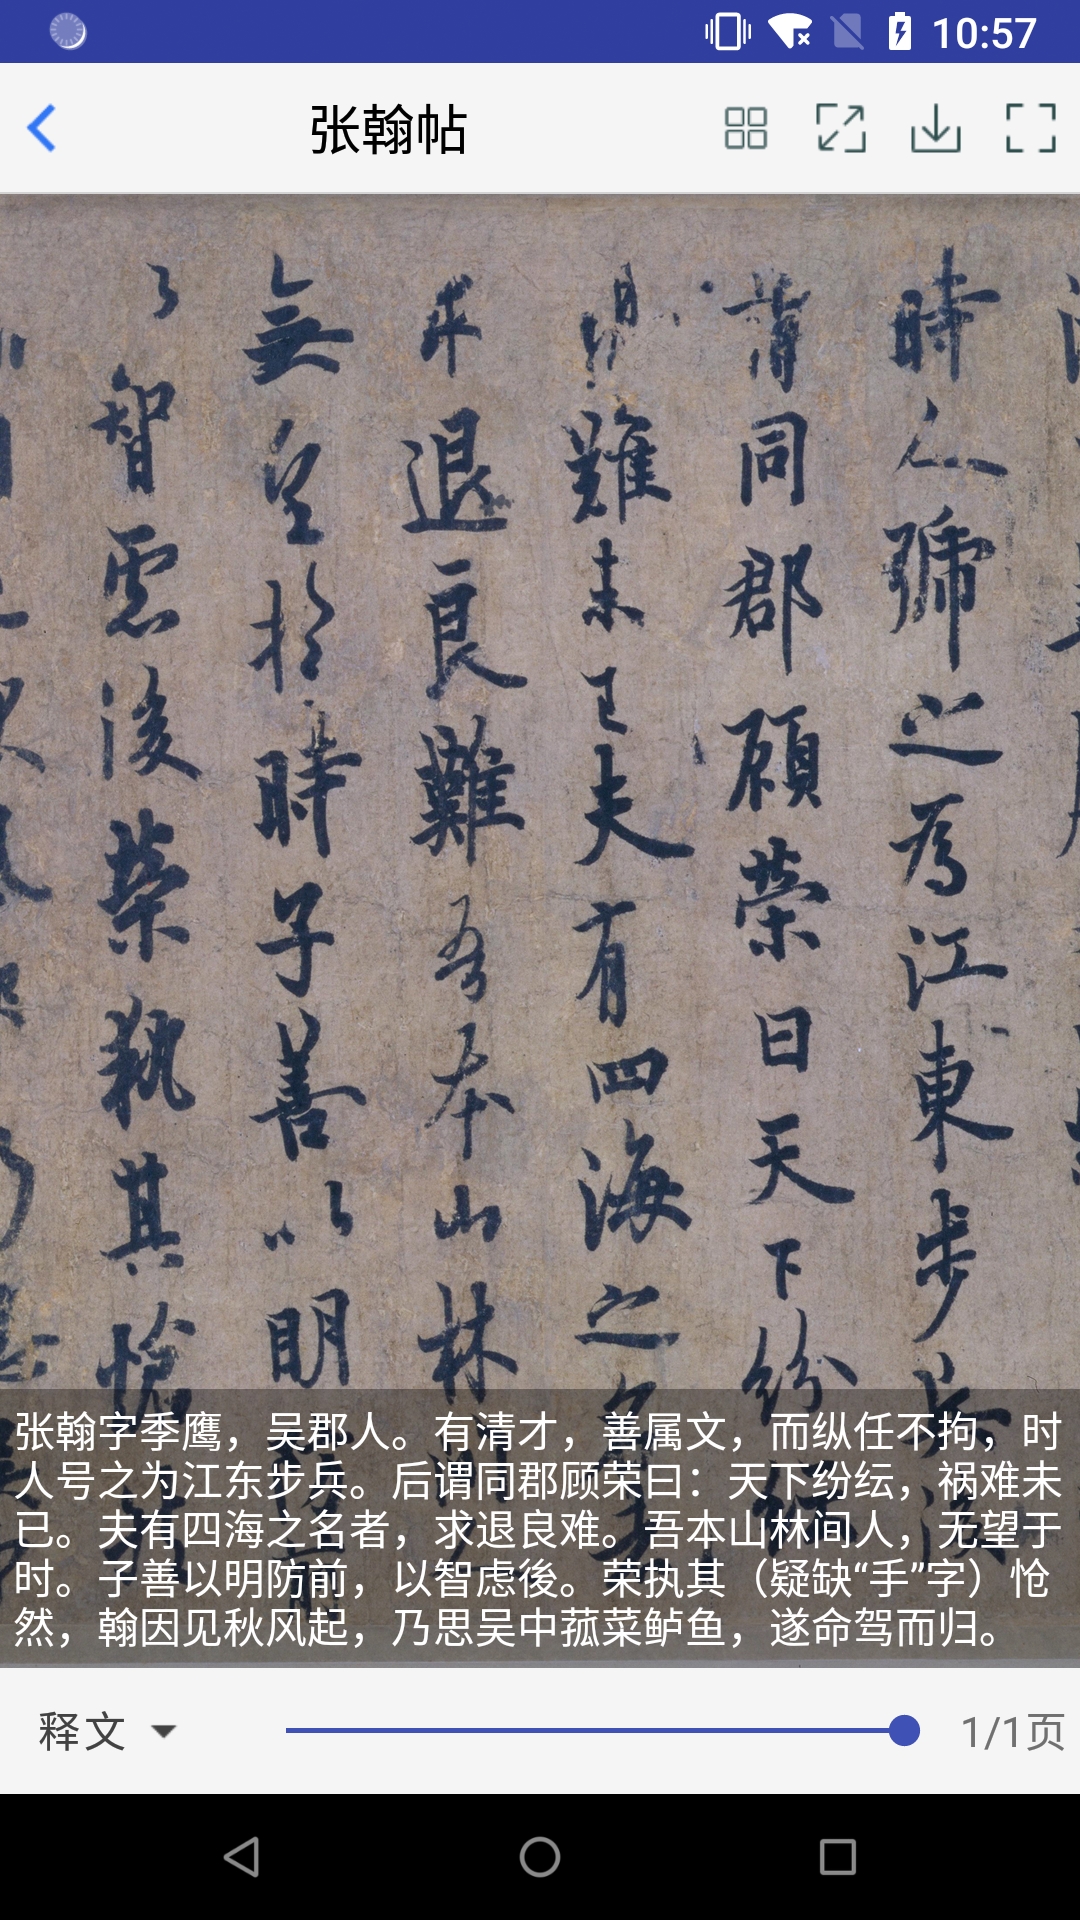 10:57
张翰帖
時人號之为江東步兵
谓同郡顾荣曰天下纷
難未已夫有四海之名
求退良難吾本山林
無望於時子善以明
以智虑後荣執其愴
张翰字季鹰，吴郡人。有清才，善属文，而纵任不拘，时
人号之为江东步兵。后谓同郡顾荣曰：天下纷纭，祸难未
已。夫有四海之名者，求退良难。吾本山林间人，无望于
时。子善以明防前，以智虑後。荣执其（疑缺“手”字）怆
然，翰因见秋风起，乃思吴中菰菜鲈鱼，遂命驾而归。
释文
1/1页